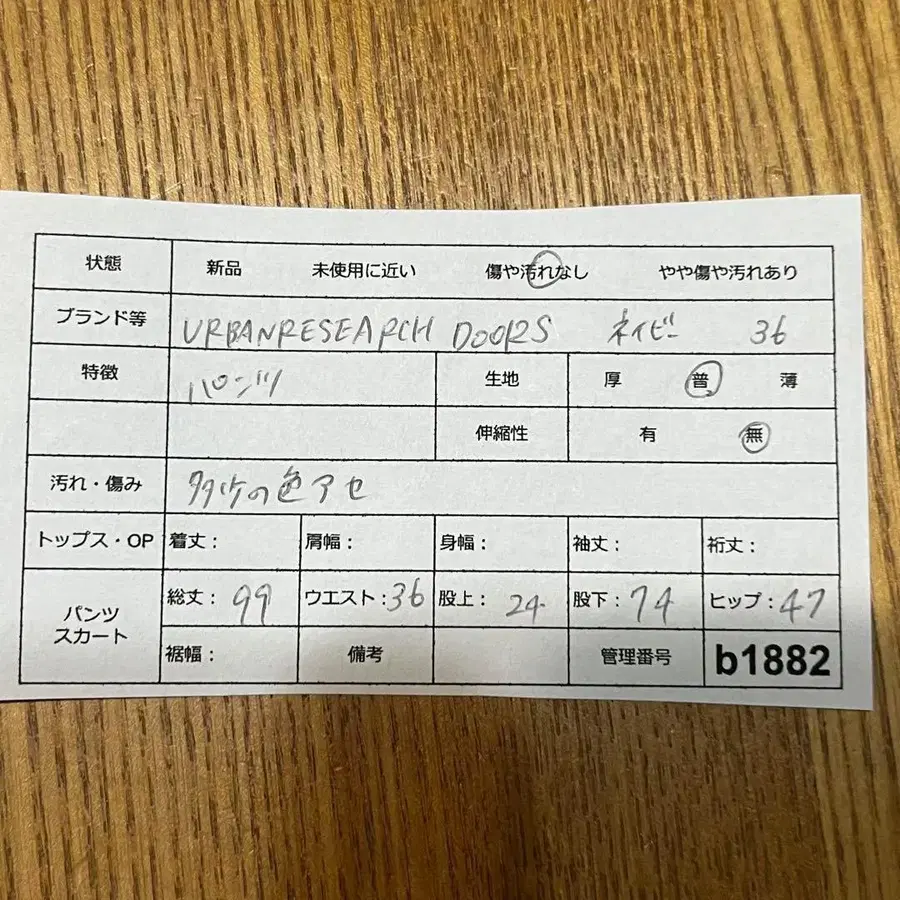 状態 新品 未使用に近い 傷や汚れなし やや傷や汚れあり
ブランド等 URBANRESEARCH DOORS ネイビー 36
特徴 パンツ 生地 厚 普 薄
伸縮性 有 無
汚れ・傷み の色アセ
トップス・OP 着丈: 肩幅: 身幅: 袖丈: 裄丈:
パンツ スカート 総丈: 99 ウエスト: 36 股上: 24 股下: 74 ヒップ: 47
裾幅: 備考 管理番号 b1882